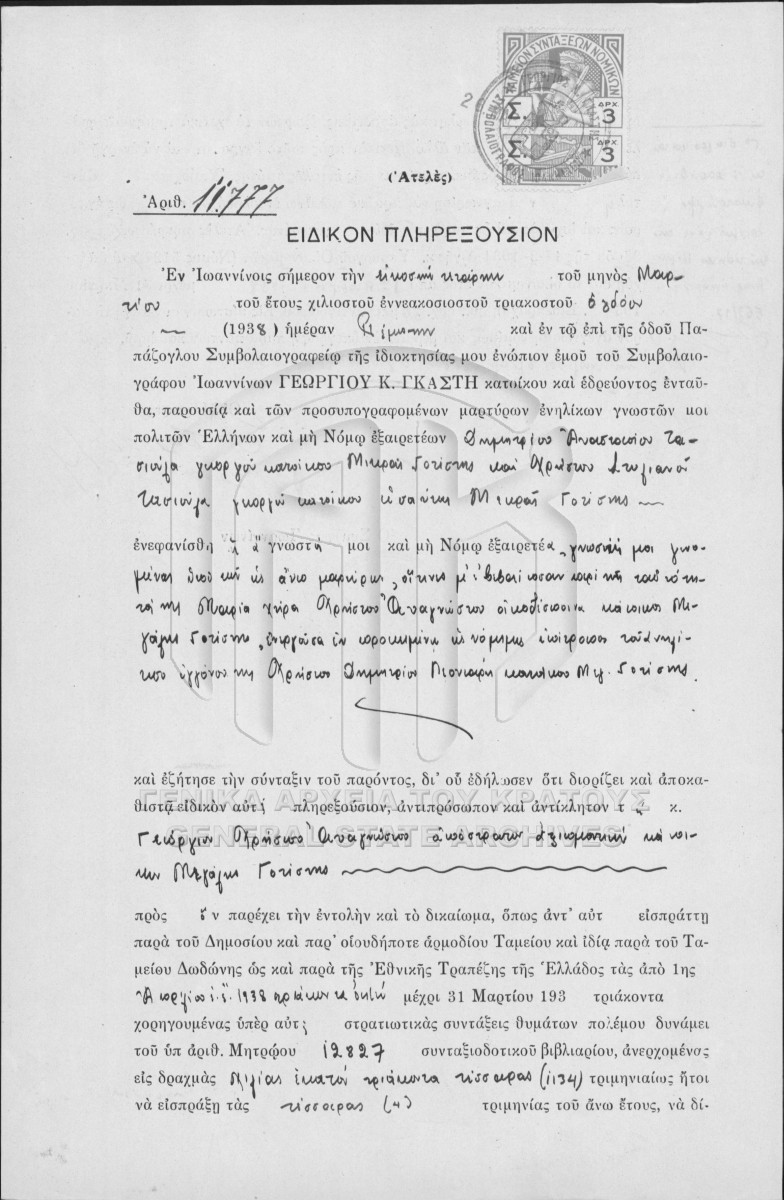 ΤΑΜΕΙΟΝ ΣΥΝΤΑΞΕΩΝ ΝΟΜΙΚΩΝ
Σ. ΔΡΧ 3
Σ. ΔΡΧ 3
2
(Ἀτελὲς)
Ἀριθ. 11.777
ΕΙΔΙΚΟΝ ΠΛΗΡΕΞΟΥΣΙΟΝ
Ἐν Ἰωαννίνοις σήμερον τὴν εἰκοστὴν τετάρτην τοῦ μηνὸς Μαρ-
τίου τοῦ ἔτους χιλιοστοῦ ἐννεακοσιοστοῦ τριακοστοῦ ὀγδόου
(1938) ἡμέραν Πέμπτην καὶ ἐν τῷ ἐπὶ τῆς ὁδοῦ Πα-
πάζογλου Συμβολαιογραφείῳ τῆς ἰδιοκτησίας μου ἐνώπιον ἐμοῦ τοῦ Συμβολαιο-
γράφου Ἰωαννίνων ΓΕΩΡΓΙΟΥ Κ. ΓΚΑΣΤΗ κατοίκου καὶ ἑδρεύοντος ἐνταῦ-
θα, παρουσίᾳ καὶ τῶν προσυπογραφομένων μαρτύρων ἐνηλίκων γνωστῶν μοι
πολιτῶν Ἑλλήνων καὶ μὴ Νόμῳ ἐξαιρετέων Δημητρίου Ἀναστασίου Τα-
σιούλα γεωργοῦ κατοίκου Μικρᾶς Γοτίστης καὶ Χρήστου Στυλιανοῦ
Τασιούλα γεωργοῦ κατοίκου Μικρᾶς Γοτίστης
ἐνεφανίσθη ἡ ἀγνωστή μοι καὶ μὴ Νόμῳ ἐξαιρετέα, γνωστή μοι γενο-
μένης ὑπὸ τῶν ὡς ἄνω μαρτύρων, οἵτινες μ' ἐβεβαίωσαν περὶ τῆς ταυτότη-
τός της Μαρία χήρα Χρήστου Ἀναγνώστου οἰκοδέσποινα κάτοικος Με-
γάλης Γοτίστης, ἐνεργοῦσα ἐν προκειμένῳ ὡς νόμιμος ἐπίτροπος τοῦ ἀνηλί-
κου ἐγγόνου της Χρήστου Δημητρίου κατοίκου Μεγ. Γοτίστης.
καὶ ἐζήτησε τὴν σύνταξιν τοῦ παρόντος, δι' οὗ ἐδήλωσεν ὅτι διορίζει καὶ ἀποκα-
θιστᾷ εἰδικὸν αὐτῆς πληρεξούσιον, ἀντιπρόσωπον καὶ ἀντίκλητον τὸν κ.
Γεώργιον Χρήστου Ἀναγνώστου ἀπόστρατον ἀξιωματικὸν κάτοι-
κον Μεγάλης Γοτίστης
πρὸς ὃν παρέχει τὴν ἐντολὴν καὶ τὸ δικαίωμα, ὅπως ἀντ' αὐτ εἰσπράττῃ
παρὰ τοῦ Δημοσίου καὶ παρ' οἱουδήποτε ἁρμοδίου Ταμείου καὶ ἰδίᾳ παρὰ τοῦ Τα-
μείου Δωδώνης ὡς καὶ παρὰ τῆς Ἐθνικῆς Τραπέζης τῆς Ἑλλάδος τὰς ἀπὸ 1ης
Ἀπριλίου ἐ.ἔ. 1938 τριάκοντα ὀκτώ μέχρι 31 Μαρτίου 193 τριάκοντα
χορηγουμένας ὑπὲρ αὐτῆς στρατιωτικὰς συντάξεις θυμάτων πολέμου δυνάμει
τοῦ ὑπ ἀριθ. Μητρῴου 12827 συνταξιοδοτικοῦ βιβλιαρίου, ἀνερχομένος
εἰς δραχμὰς χιλίας ἑκατὸν τριάκοντα τέσσαρας (1134) τριμηνιαίως ἤτοι
νὰ εἰσπράξῃ τὰς τέσσαρας (4) τριμηνίας τοῦ ἄνω ἔτους, νὰ δί-
ΓΕΝΙΚΑ ΑΡΧΕΙΑ ΤΟΥ ΚΡΑΤΟΥΣ
GENERAL STATE ARCHIVES